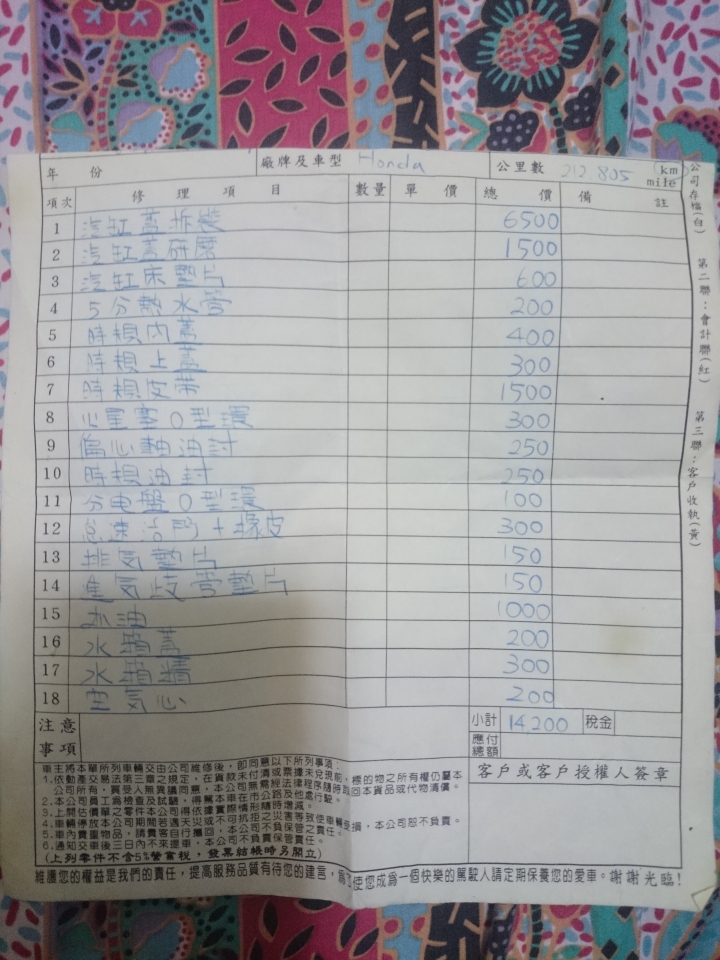 年 份 廠牌及車型 Honda 公里數 212.805 km mile
項次 修理項目 數量 單價 總價 備註
1 汽缸蓋拆裝 6500
2 汽缸蓋研磨 1500
3 汽缸床墊片 600
4 5分熱水管 200
5 時規內蓋 400
6 時規上蓋 300
7 時規皮帶 1500
8 火星塞O型環 300
9 偏心軸油封 250
10 時規油封 250
11 分电盤O型環 100
12 怠速 + 橡皮 300
13 排気墊片 150
14 進気歧管墊片 150
15 油 1000
16 水箱蓋 200
17 水箱精 300
18 空気心 200
注意事項
小計 14,200 稅金
應付總額
客戶或客戶授權人簽章
車主將本單所列車輛交由公司維修後，即同意以下所列事項：
1.依動產交易法第三章之規定，在貨款未付清或票據未兌現前，標的物之所有權仍屬本
公司所有，買受人無異議同意，本公司無需經法律程序隨時取回本貨品或代物清償。
2.本公司員工為檢查及試驗，得駕本車在市公路及他處行駛。
3.上開估價單之零件本公司得依據實際情形隨時增減。
4.車輛停放本公司期間若遇天災或不可抗拒之災害等致使車輛受損，本公司恕不負責。
5.車內貴重物品，請貴客自行攜回，本公司不負保管之責任。
6.通知交車後三日內不來提車，本公司不負責保管責任。
(上列零件不含5%營業稅，發票結帳時另開立)
維護您的權益是我們的責任，提高服務品質有待您的建言，為了使您成為一個快樂的駕駛人請定期保養您的愛車。謝謝光臨！
公司存檔(白)
第二聯：會計聯(紅)
第三聯：客戶收執(黃)